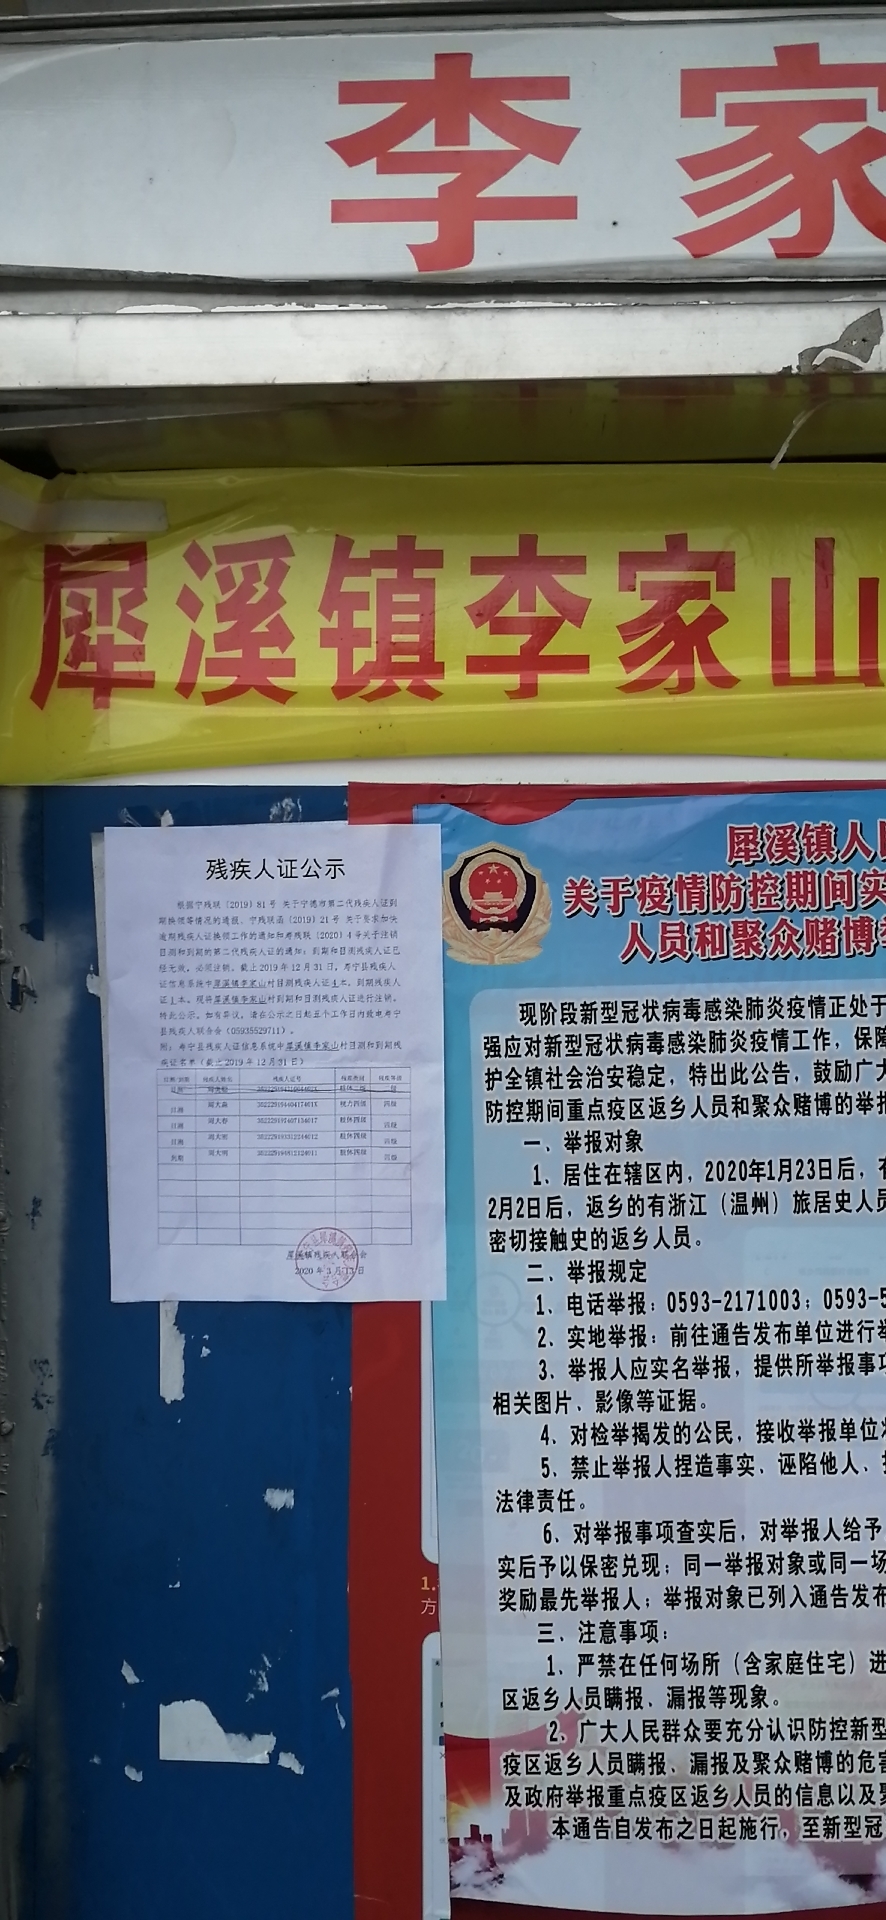 李家
犀溪镇李家山
残疾人证公示
根据宁残联〔2019〕81号 关于宁德市第二代残疾人证到
期换领等情况的通报、宁残联函〔2019〕21号 关于要求加快
逾期残疾人证换领工作的通知和寿残联〔2020〕4号关于注销
目测和到期的第二代残疾人证的通知：到期和目测残疾人证已
经无效，必须注销。截止2019年12月31日，寿宁县残疾人
证信息系统中犀溪镇李家山村目测残疾人证4本，到期残疾人
证1本。现将犀溪镇李家山村到期和目测残疾人证进行注销。
特此公示。如有异议，请在公示之日起五个工作日内致电寿宁
县残疾人联合会（05935529711）。
附：寿宁县残疾人证信息系统中犀溪镇李家山村目测和到期残
疾证名单（截止2019年12月31日）
目测/到期 残疾人姓名 残疾人证号 残疾类别 残疾等级
目测 视力四级 四级
目测 肢体四级 四级
目测 肢体四级 四级
到期 肢体四级 四级
犀溪镇残疾人联合会
2020年3月13日
犀溪镇人民
关于疫情防控期间实
人员和聚众赌博
现阶段新型冠状病毒感染肺炎疫情正处于
强应对新型冠状病毒感染肺炎疫情工作，保障
护全镇社会治安稳定，特出此公告，鼓励广大
防控期间重点疫区返乡人员和聚众赌博的举报
一、举报对象
1、居住在辖区内，2020年1月23日后，有
2月2日后，返乡的有浙江（温州）旅居史人员
密切接触史的返乡人员。
二、举报规定
1、电话举报：0593-2171003；0593-5
2、实地举报：前往通告发布单位进行举
3、举报人应实名举报，提供所举报事项
相关图片、影像等证据。
4、对检举揭发的公民，接收举报单位将
5、禁止举报人捏造事实、诬陷他人、
法律责任。
6、对举报事项查实后，对举报人给予
实后予以保密兑现；同一举报对象或同一场
奖励最先举报人；举报对象已列入通告发布
三、注意事项：
1、严禁在任何场所（含家庭住宅）进
区返乡人员瞒报、漏报等现象。
2、广大人民群众要充分认识防控新型
疫区返乡人员瞒报、漏报及聚众赌博的危害
及政府举报重点疫区返乡人员的信息以及聚
本通告自发布之日起施行，至新型冠
1.
方